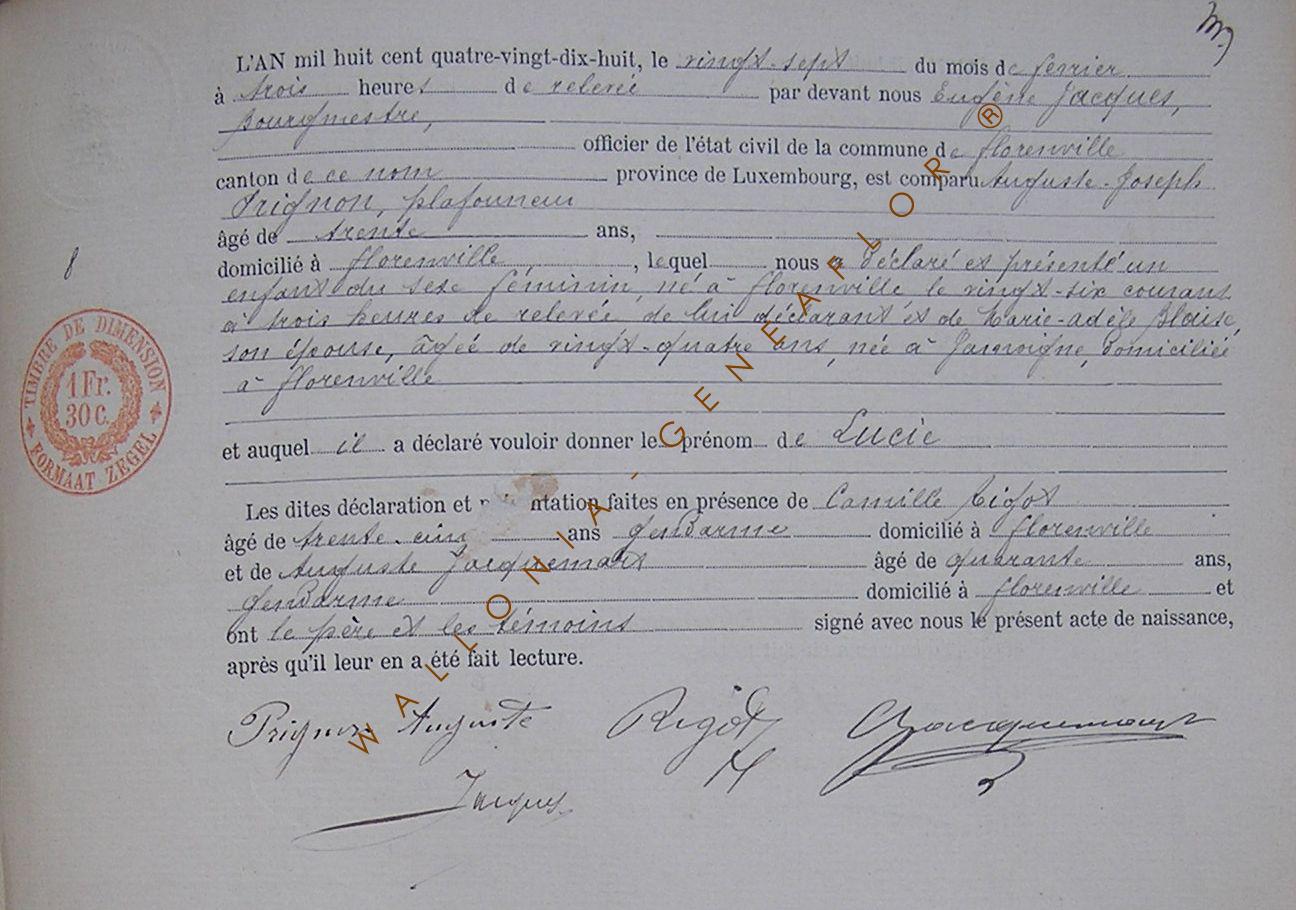 L'AN mil huit cent quatre-vingt-dix-huit, le vingt-sept du mois de février
à trois heures de relevée par devant nous Eugène Jacques,
bourgmestre,
officier de l'état civil de la commune de florenville
canton de ce nom province de Luxembourg, est comparu Auguste-Joseph
Prignon, plafonneur
âgé de trente ans,
domicilié à florenville, lequel nous a déclaré et présenté un
8
enfant du sexe féminin, né à florenville le vingt-six courant
à trois heures de relevée de lui déclarant et de Marie-Adèle Blaise,
son épouse, âgée de vingt-quatre ans, née à Jamoigne, domiciliée
à florenville
TIMBRE DE DIMENSION
1 Fr.
30 C.
FORMAAT ZEGEL
et auquel il a déclaré vouloir donner le prénom de Lucie
Les dites déclaration et ntation faites en présence de Camille Rigot
âgé de trente-cinq ans gendarme domicilié à florenville
et de Auguste Jacquemart âgé de quarante ans,
gendarme domicilié à florenville et
ont le père et les témoins signé avec nous le présent acte de naissance,
après qu'il leur en a été fait lecture.
Prignon Auguste Rigot Jacquemart
Jacques
WALLONIA-GENEAFLOR®